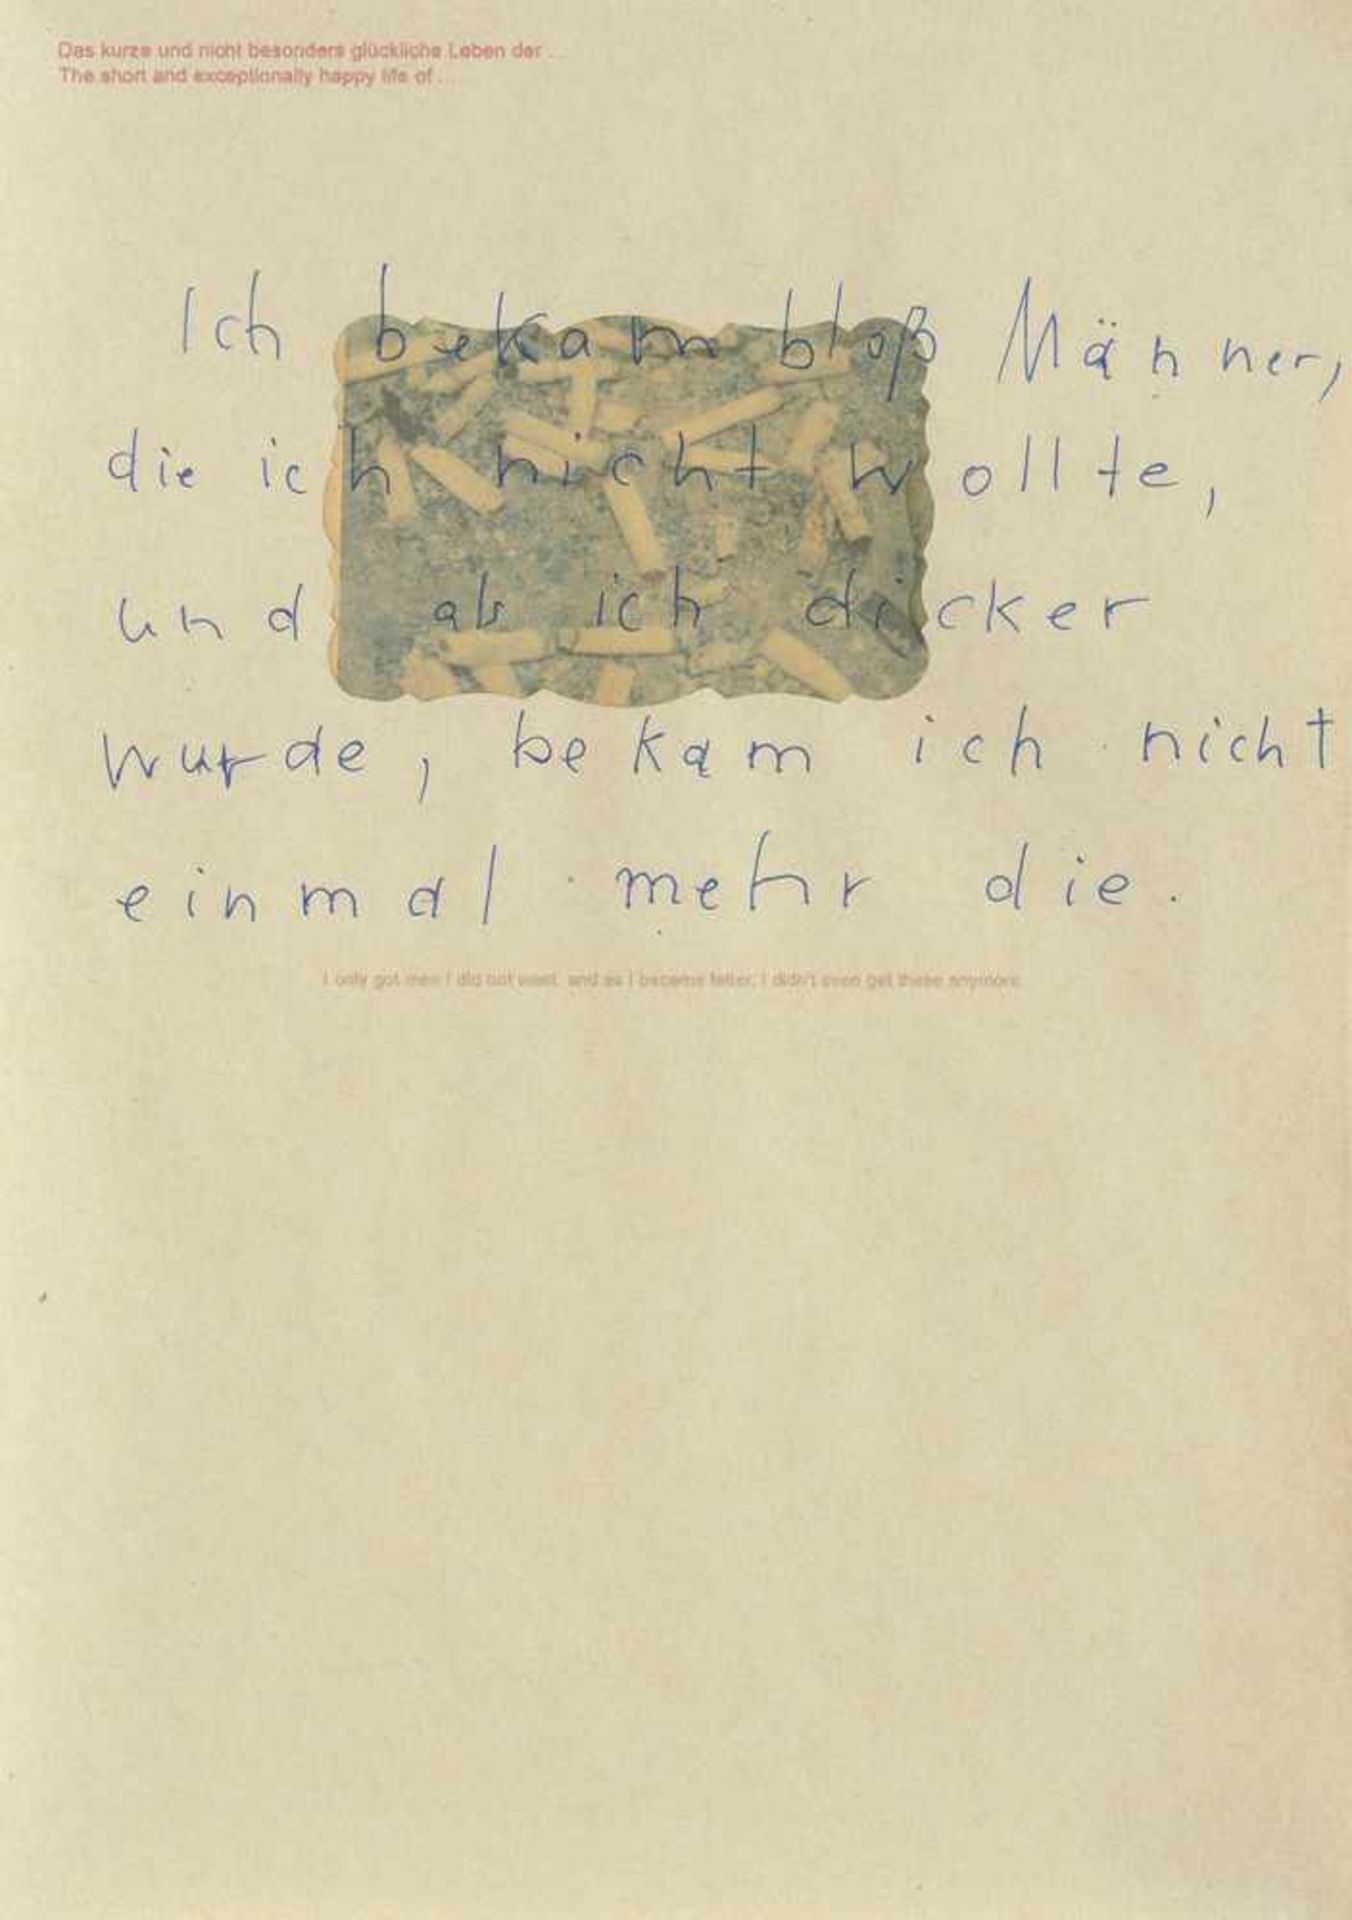 Das kurze und nicht besonders glückliche Leben der ...
The short and exceptionally happy life of ...
Ich bekam bloß Männer,
die ich nicht wollte,
und als ich dicker
wurde, bekam ich nicht
einmal mehr die.
I only got men I did not want, and as I became fatter, I didn't even get these anymore.